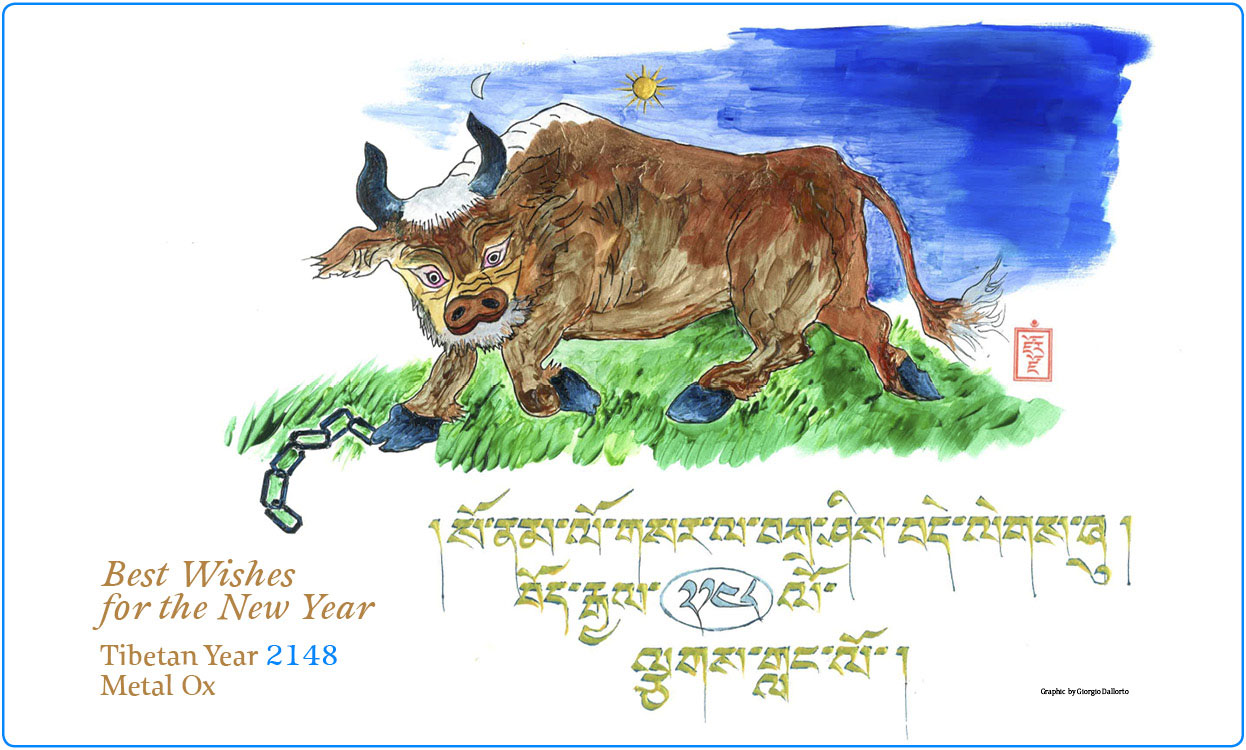 ། སོ་ནམ་ལོ་གསར་ལ་བཀྲ་ཤིས་བདེ་ལེགས་ཞུ །
བོད་རྒྱལ་ ༢༡༤༨ ལོ་
ལྕགས་གླང་ལོ་ །
Best Wishes
for the New Year
Tibetan Year 2148
Metal Ox
Graphic by Giorgio Dallorto